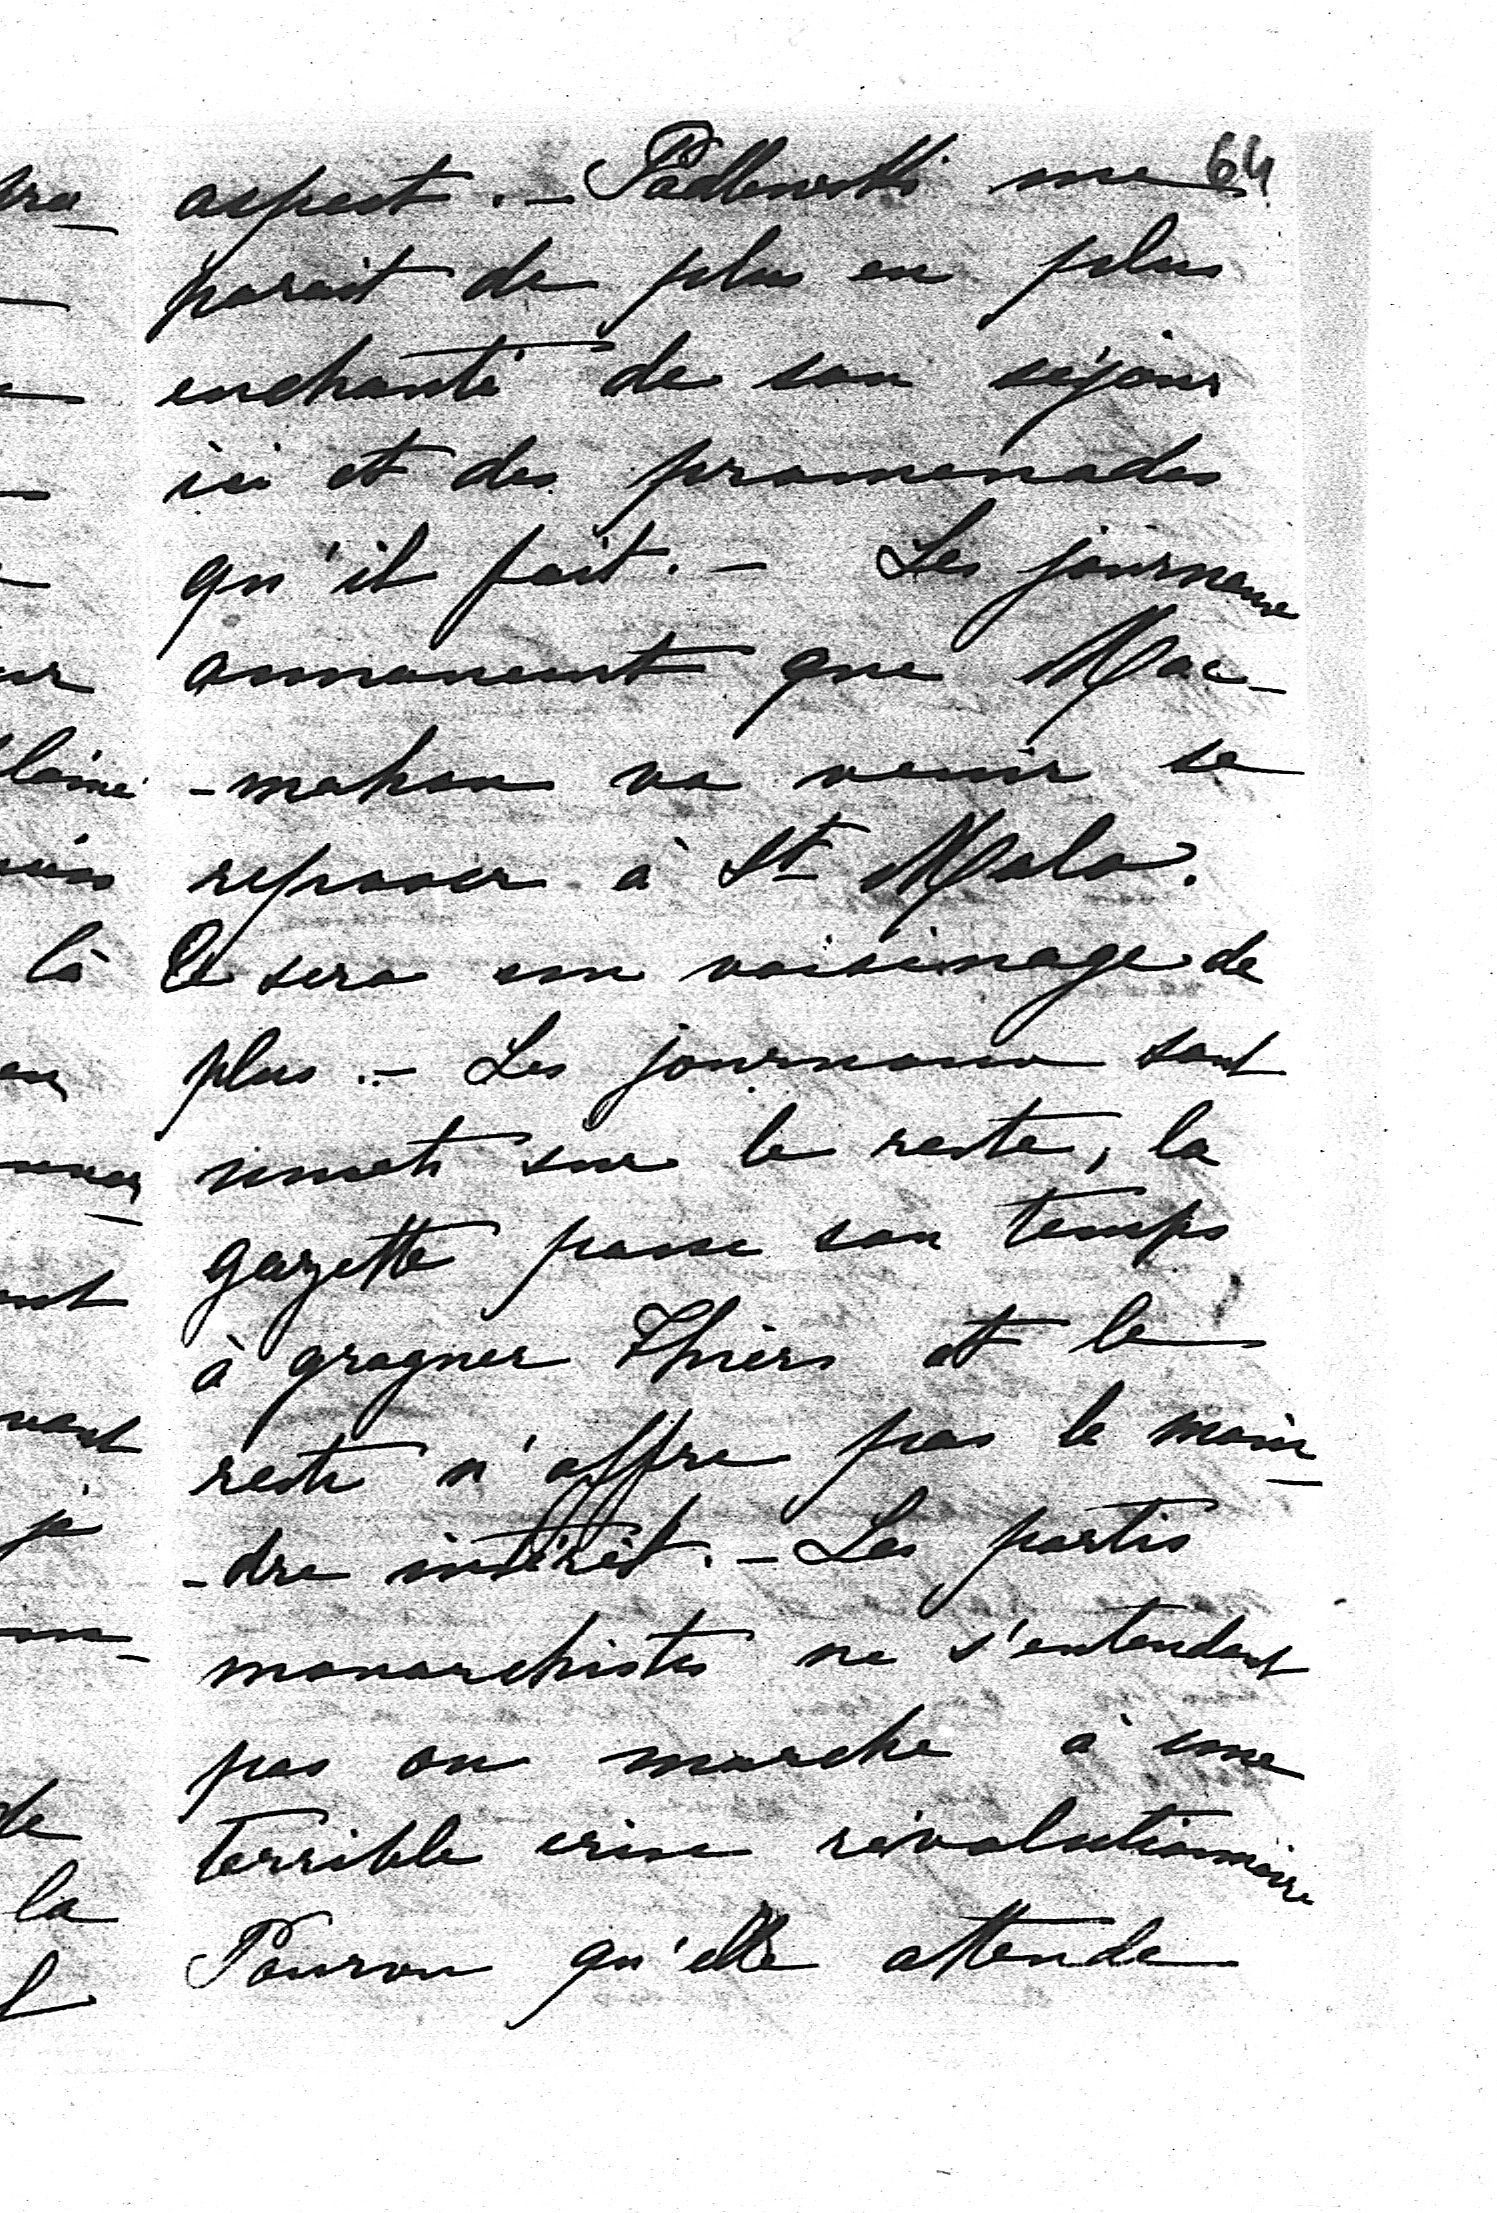 64
aspect. – Padlewski me
parait de plus en plus
enchanté de son séjour
ici et des promenades
qu'il fait. – Les journaux
annoncent que Mac-
-mahon va venir se
reposer à St Malo.
Ce sera un voisinage de
plus. – Les journaux sont
muets sur le reste, la
gazette passe son temps
à grogner Thiers et le
reste n'offre pas le moin-
-dre intérêt. – Les partis
monarchistes ne s'entendent
pas on marche à une
terrible crise révolutionnaire
Pourvu qu'elle attende